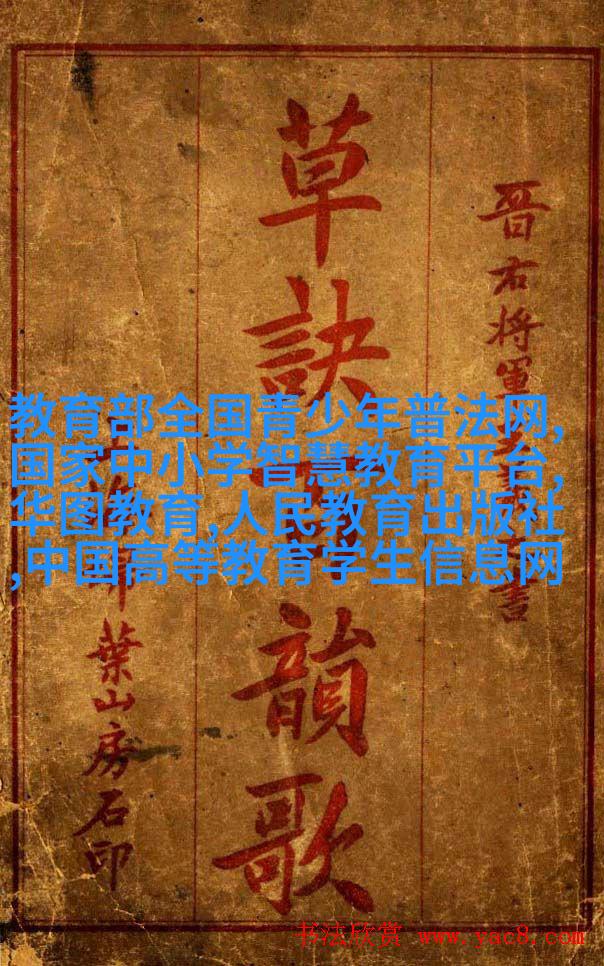 晋右将軍書
草訣韻歌
葉山房石印
教育部全国青少年普法网,
国家中小学智慧教育平台,
华图教育,人民教育出版社
,中国高等教育学生信息网
书法欣赏 www.yac8.com